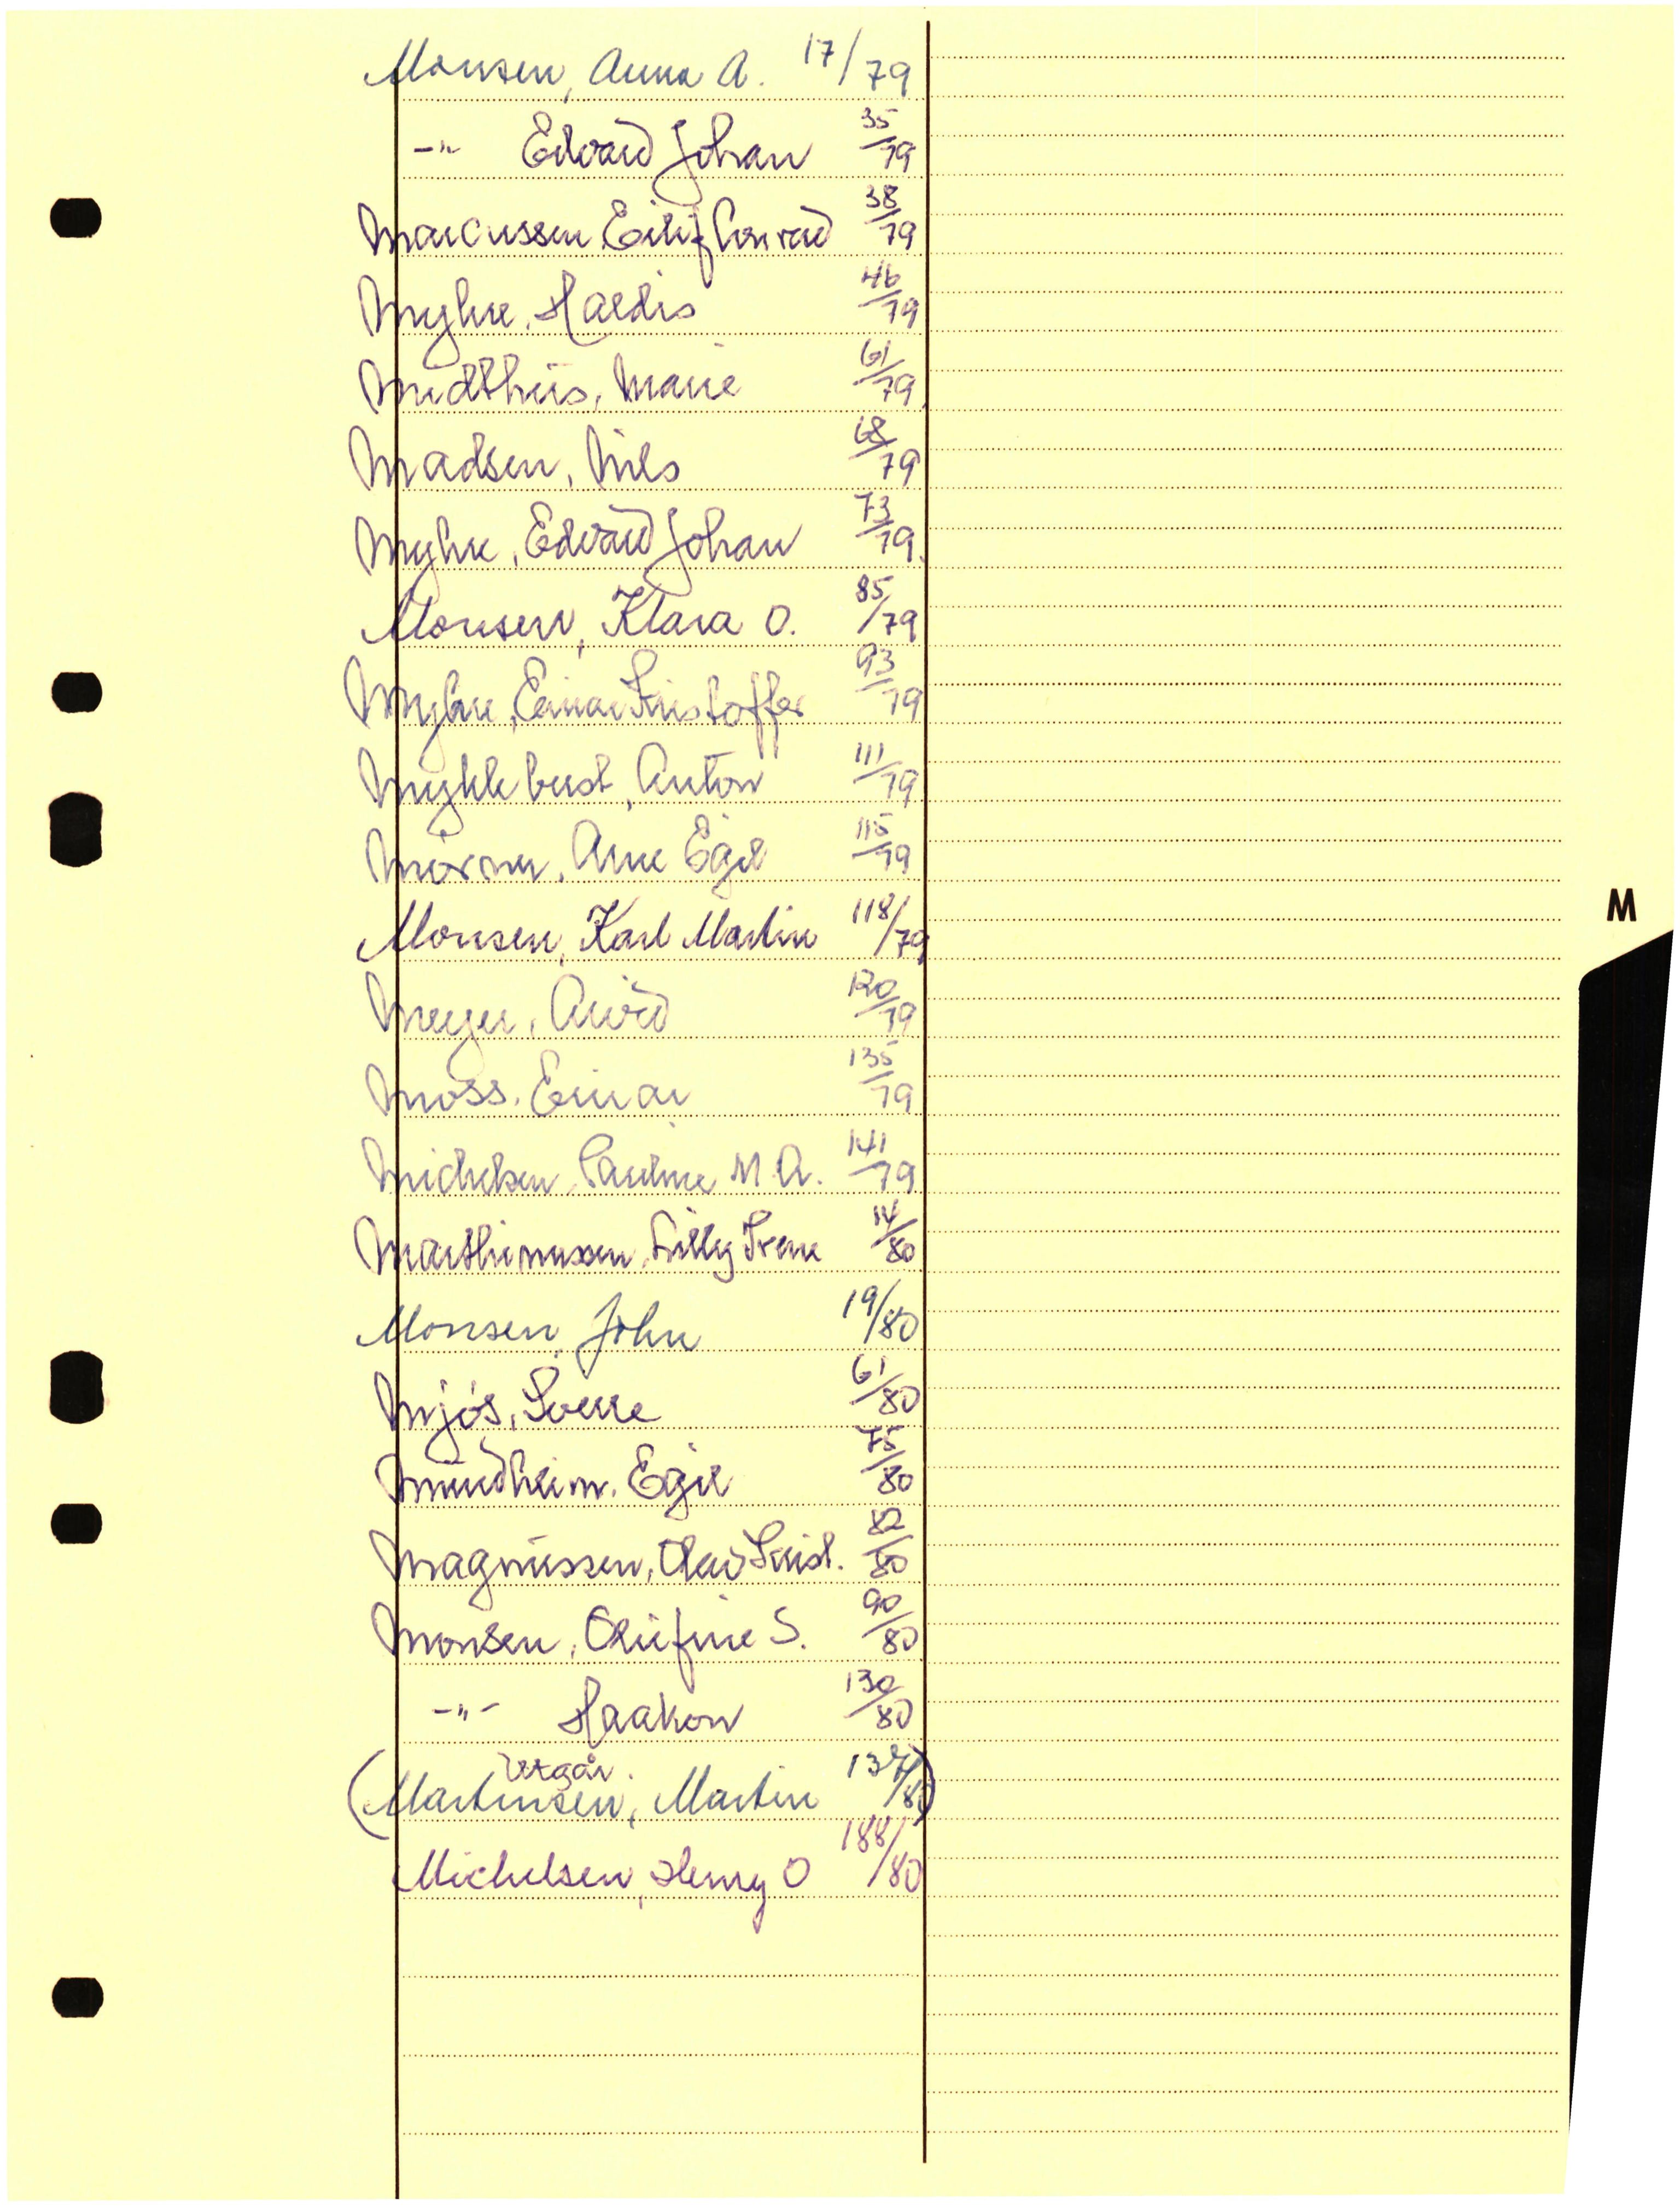 Monsen, Anna A. 17/79
-"- Edvard Johan 35/79
Marcussen, Eilif Conrad 38/79
Myhre, Haldis 46/79
Midthus, Marie 61/79
Madsen, Nils 68/79
Myhre, Edvard Johan 73/79
Monsen, Klara O. 85/79
Myhre, Einar Kristoffer 93/79
Myklebust, Anton 111/79
Arne Egil 115/79
Monsen, Karl Martin 118/79
Meyer, Arvid 120/79
Moss, Einar 135/79
Michelsen, Pauline M.A. 141/79
Marthinussen, Lilly Irene 14/80
Monsen, John 19/80
Mjøs, Sverre 61/80
Mundheim, Egil 75/80
Magnussen, Olav Krist. 82/80
Monsen, Olufine S. 90/80
-"- Haakon 130/80
Utgår.
(Martinsen, Martin /80)
Michelsen, Henry O 188/80
M